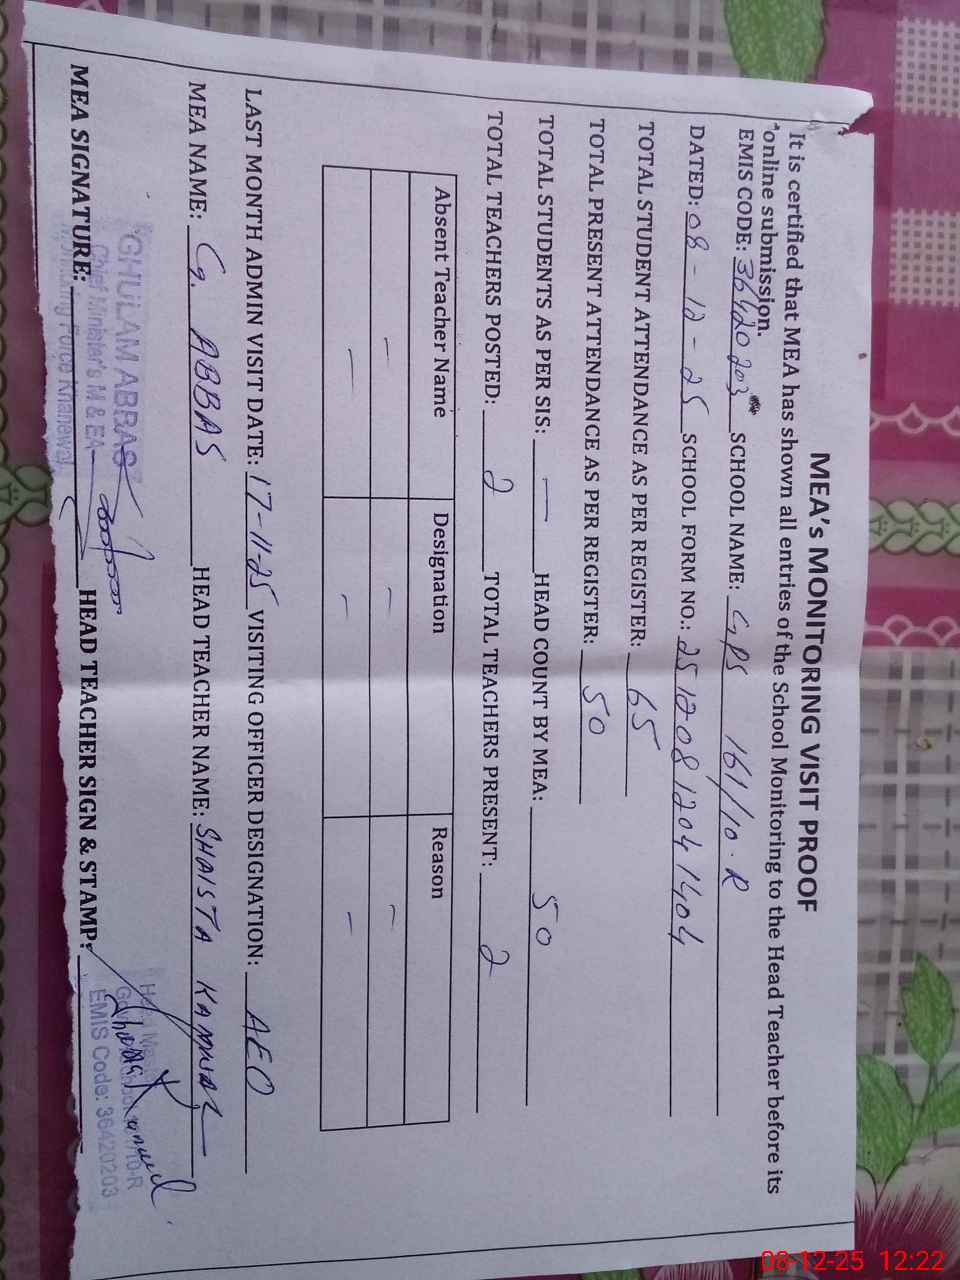 MEA's MONITORING VISIT PROOF
It is certified that MEA has shown all entries of the School Monitoring to the Head Teacher before its
online submission.
EMIS CODE: 36420203 SCHOOL NAME: GPS 161/10.R
DATED: 08-12-25 SCHOOL FORM NO.: 25120812041404
TOTAL STUDENT ATTENDANCE AS PER REGISTER: 65
TOTAL PRESENT ATTENDANCE AS PER REGISTER: 50
TOTAL STUDENTS AS PER SIS: — HEAD COUNT BY MEA: 50
TOTAL TEACHERS POSTED: 2 TOTAL TEACHERS PRESENT: 2
Absent Teacher Name Designation Reason
— — —
— — —
LAST MONTH ADMIN VISIT DATE: 17-11-25 VISITING OFFICER DESIGNATION: AEO
MEA NAME: G. ABBAS HEAD TEACHER NAME: SHAISTA KANWAL
GHULAM ABBAS
Chief Minister's M & EA
Force Khanewal
MEA SIGNATURE: HEAD TEACHER SIGN & STAMP:
EMIS Code: 36420203
08-12-25 12:22